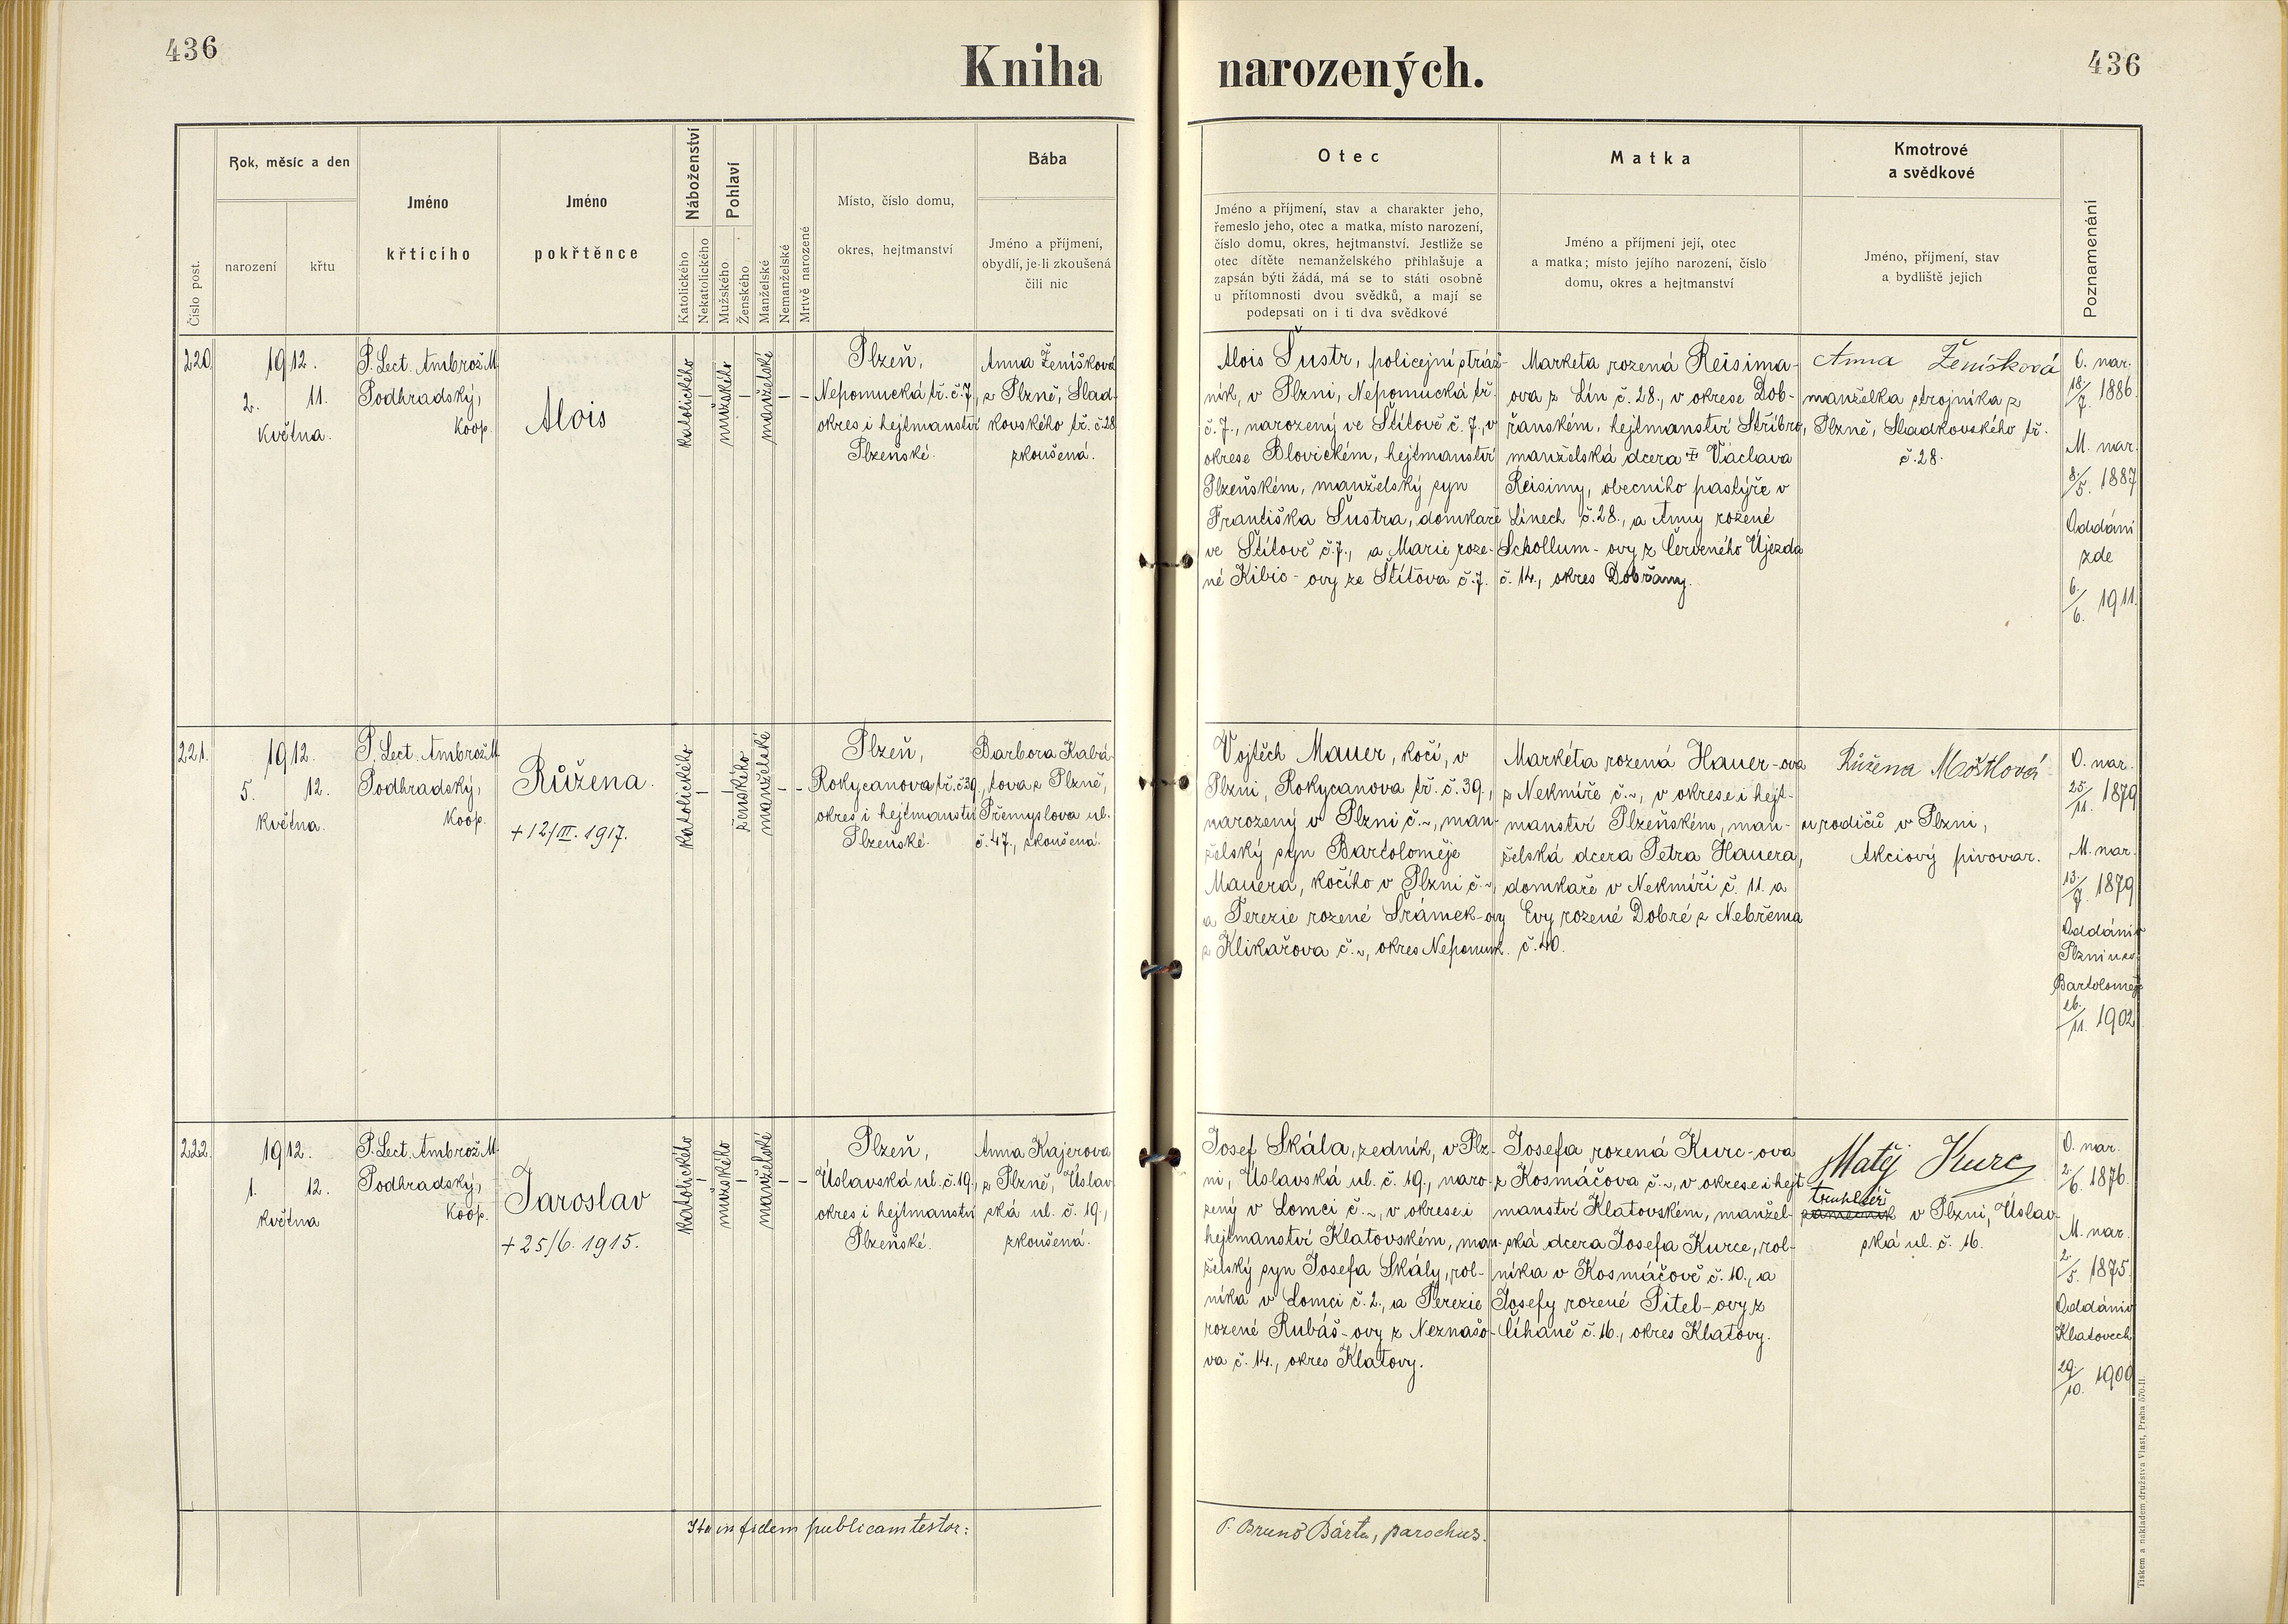 436
Kniha narozených.
436
Číslo post.
Rok, měsíc a den
narození
křtu
Jméno
křtícího
Jméno
pokřtěnce
Náboženství
Katolického
Nekatolického
Pohlaví
Mužského
Ženského
Manželské
Nemanželské
Mrtvě narozené
Místo, číslo domu,
okres, hejtmanství
Bába
Jméno a příjmení,
obydlí, je-li zkoušená
čili nic
Otec
Jméno a příjmení, stav a charakter jeho,
řemeslo jeho, otec a matka, místo narození,
číslo domu, okres, hejtmanství. Jestliže se
otec dítěte nemanželského přihlašuje a
zapsán býti žádá, má se to státi osobně
u přítomnosti dvou svědků, a mají se
podepsati on i ti dva svědkové
Matka
Jméno a příjmení její, otec
a matka; místo jejího narození, číslo
domu, okres a hejtmanství
Kmotrové
a svědkové
Jméno, příjmení, stav
a bydliště jejich
Poznamenání
220
1912.
2. 11.
Května.
P. Lect. Ambrož M.
Podhradský,
Koop.
Alois
katolického
–
mužského
–
manželské
– –
Plzeň,
Nepomucká tř. č. 7.,
okres i hejtmanství
Plzeňské.
Anna Ženíšková
z Plzně, Slad-
kovského tř. č. 28
zkoušená.
Alois Šustr, policejní stráž-
ník, v Plzni, Nepomucká tř.
č. 7., narozený ve Štítově č. 7., v
okrese Blovickém, hejtmanství
Plzeňském, manželský syn
Františka Šustra, domkaře
ve Štítově č. 7., a Marie roze-
né Kibic-ovy ze Štítova č. 7.
Marketa rozená Reisima-
ova z Lín č. 28., v okrese Dob-
řanském, hejtmanství Stříbro,
manželská dcera ‡ Václava
Reisimy, obecního pastýře v
Línech č. 28., a Anny rozené
Schollum-ovy z Červeného Újezda
č. 14., okres Dobřany.
Anna Ženíšková
manželka strojníka z
Plzně, Sladkovského tř.
č. 28.
O. nar.
18/7. 1886.
M. nar.
8/5. 1887
Oddáni
zde
6./6. 1911.
221.
1912.
5. 12.
Května.
P. Lect. Ambrož M.
Podhradský,
Koop.
Růžena.
+ 12/III. 1917.
katolického
–
–
ženského
manželské
– –
Plzeň,
Rokycanova tř. č. 39.,
okres i hejtmanství
Plzeňské.
Barbora Kabá-
tova z Plzně,
Přemyslova ul.
č. 47., zkoušená.
Vojtěch Mauer, kočí, v
Plzni, Rokycanova tř. č. 39.,
narozený v Plzni č. ~, man-
želský syn Bartoloměje
Mauera, kočího v Plzni č. ~,
a Terezie rozené Šrámek-ovy
z Klikařova č. ~, okres Nepomuk.
Markéta rozená Hauer-ova
z Nekmíře č. ~, v okrese i hejt-
manství Plzeňském, man-
želská dcera Petra Hauera,
domkaře v Nekmíři č. 11. a
Evy rozené Dobré z Nebřema
č. 40.
Růžena Moštlová
u rodičů v Plzni,
Akciový pivovar.
O. nar.
25/11. 1879
M. nar.
13/7. 1879
Oddáni v
Plzni u sv.
Bartoloměje
16./11. 1902
222.
1912.
1. 12.
května
P. Lect. Ambrož M.
Podhradský,
Koop.
Jaroslav
+ 25/6. 1915.
katolického
–
mužského
–
manželské
– –
Plzeň,
Úslavská ul. č. 19.,
okres i hejtmanství
Plzeňské.
Anna Kajerova
z Plzně, Úslav-
ská ul. č. 19.,
zkoušená.
Josef Skála, zedník, v Plz-
ni, Úslavská ul. č. 19., naro-
zený v Lomci č. ~, v okrese i
hejtmanství Klatovském, man-
želský syn Josefa Skály, rol-
níka v Lomci č. 2., a Terezie
rozené Rubáš-ovy z Neznašo-
va č. 14., okres Klatovy.
Josefa rozená Kurc-ova
z Kosmáčova č. ~, v okrese i hejt-
manství Klatovském, manžel-
ská dcera Josefa Kurce, rol-
níka v Kosmáčově č. 10., a
Josefy rozené Pitel-ovy z
Číhaně č. 16., okres Klatovy.
Matěj Kurc
truhlář
zámečník v Plzni, Úslav-
ská ul. č. 16.
O. nar.
2./6. 1876.
M. nar.
2./5. 1875.
Oddáni v
Klatovech
29./10. 1909
Ita in fidem publicam testor:
P. Bruno Bárta, parochus.
Tiskem a nákladem družstva Vlast, Praha 570-II.